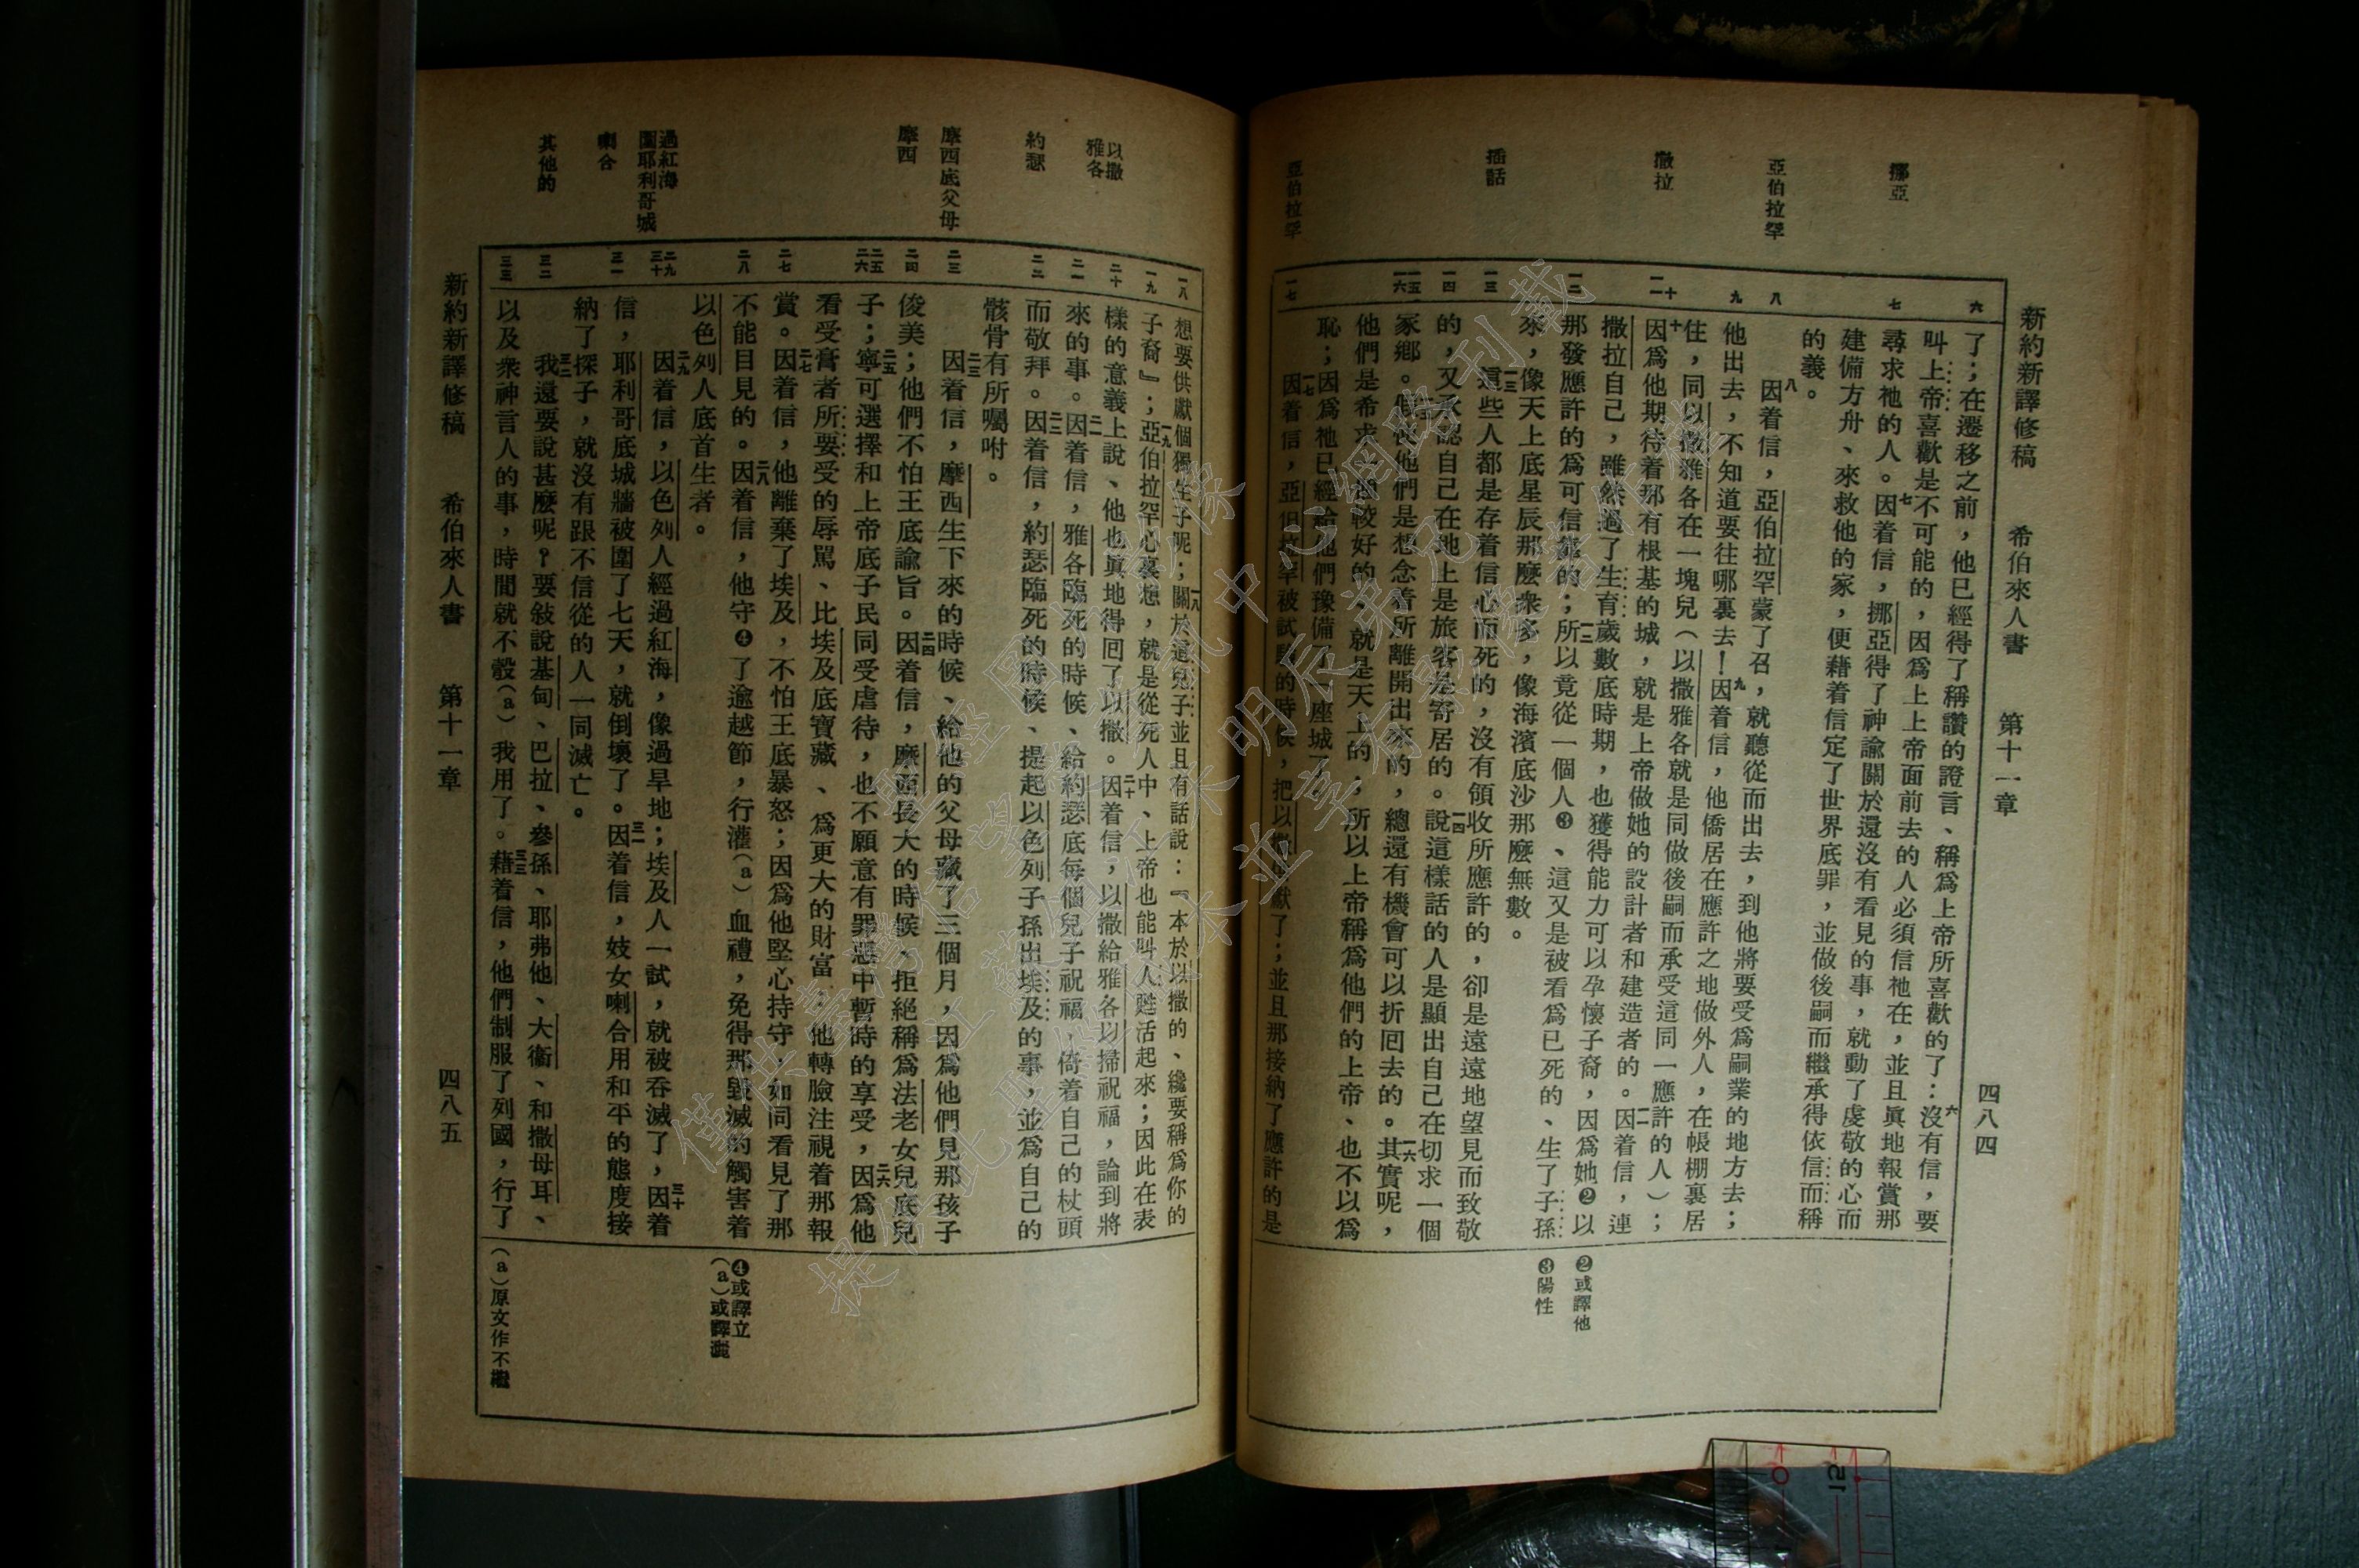 新約新譯修稿 希伯來人書 第十一章 四八四
挪亞
亞伯拉罕
撒拉
插話
亞伯拉罕
六
七
八
九
十
一一
一二
一三
一四
一五
一六
一七
了；在遷移之前，他已經得了稱讚的證言、稱爲上帝所喜歡的了：六沒有信，要
叫上帝喜歡是不可能的，因爲上上帝面前去的人必須信祂在，並且眞地報賞那
尋求祂的人。七因着信，挪亞得了神諭關於還沒有看見的事，就動了虔敬的心而
建備方舟、來救他的家，便藉着信定了世界底罪，並做後嗣而繼承得依信而稱
的義。
八因着信，亞伯拉罕蒙了召，就聽從而出去，到他將要受爲嗣業的地方去；
他出去，不知道要往哪裏去！九因着信，他僑居在應許之地做外人，在帳棚裏居
住，同以撒雅各在一塊兒（以撒雅各就是同做後嗣而承受這同一應許的人）；
十因爲他期待着那有根基的城，就是上帝做她的設計者和建造者的。一一因着信，連
撒拉自己，雖然過了生育歲數底時期，也獲得能力可以孕懷子裔，因爲她❷以
那發應許的爲可信靠的；一二所以竟從一個人❸、這又是被看爲已死的、生了子孫
來，像天上底星辰那麼衆多，像海濱底沙那麼無數。
一三這些人都是存着信心而死的，沒有領收所應許的，卻是遠遠地望見而致敬
的，又承認自己在地上是旅客是寄居的。一四說這樣話的人是顯出自己在切求一個
家鄉。一五假使他們是想念着所離開出來的，總還有機會可以折回去的。一六其實呢，
他們是希求一個較好的，就是天上的，所以上帝稱爲他們的上帝、也不以爲
恥；因爲祂已經給他們豫備了一座城了。
一七因着信，亞伯拉罕被試驗的時候，把以撒獻了；並且那接納了應許的是
❷或譯他
❸陽性
以撒
雅各
約瑟
摩西底父母
摩西
過紅海
圍耶利哥城
喇合
其他的
一八
一九
二十
二一
二二
二三
二四
二五
二六
二七
二八
二九
三十
三一
三二
三三
想要供獻個獨生子呢；一八關於這兒子並且有話說：『本於以撒的、纔要稱爲你的
子裔』；一九亞伯拉罕心裏想，就是從死人中、上帝也能叫人甦活起來；因此在表
樣的意義上說、他也眞地得回了以撒。二十因着信，以撒給雅各以掃祝福，論到將
來的事。二一因着信，雅各臨死的時候、給約瑟底每個兒子祝福，倚着自己的杖頭
而敬拜。二二因着信，約瑟臨死的時候、提起以色列子孫出埃及的事，並爲自己的
骸骨有所囑咐。
二三因着信，摩西生下來的時候、給他的父母藏了三個月，因爲他們見那孩子
俊美；他們不怕王底諭旨。二四因着信，摩西長大的時候、拒絕稱爲法老女兒底兒
子；二五寧可選擇和上帝底子民同受虐待，也不願意有罪惡中暫時的享受，二六因爲他
看受膏者所要受的辱駡、比埃及底寶藏、爲更大的財富：他轉臉注視着那報
賞。二七因着信，他離棄了埃及，不怕王底暴怒；因爲他堅心持守，如同看見了那
不能目見的。二八因着信，他守❹了逾越節，行灌（a）血禮，免得那毀滅的觸害着
以色列人底首生者。
二九因着信，以色列人經過紅海，像過旱地；埃及人一試，就被吞滅了，三十因着
信，耶利哥底城牆被圍了七天，就倒壞了。三一因着信，妓女喇合用和平的態度接
納了探子，就沒有跟不信從的人一同滅亡。
三二我還要說甚麼呢？要敍說基甸、巴拉、參孫、耶弗他、大衞、和撒母耳、
以及衆神言人的事，時間就不彀（a）我用了。三三藉着信，他們制服了列國，行了
❹或譯立
（a）或譯灑
（a）原文作不繼
新約新譯修稿 希伯來人書 第十一章 四八五